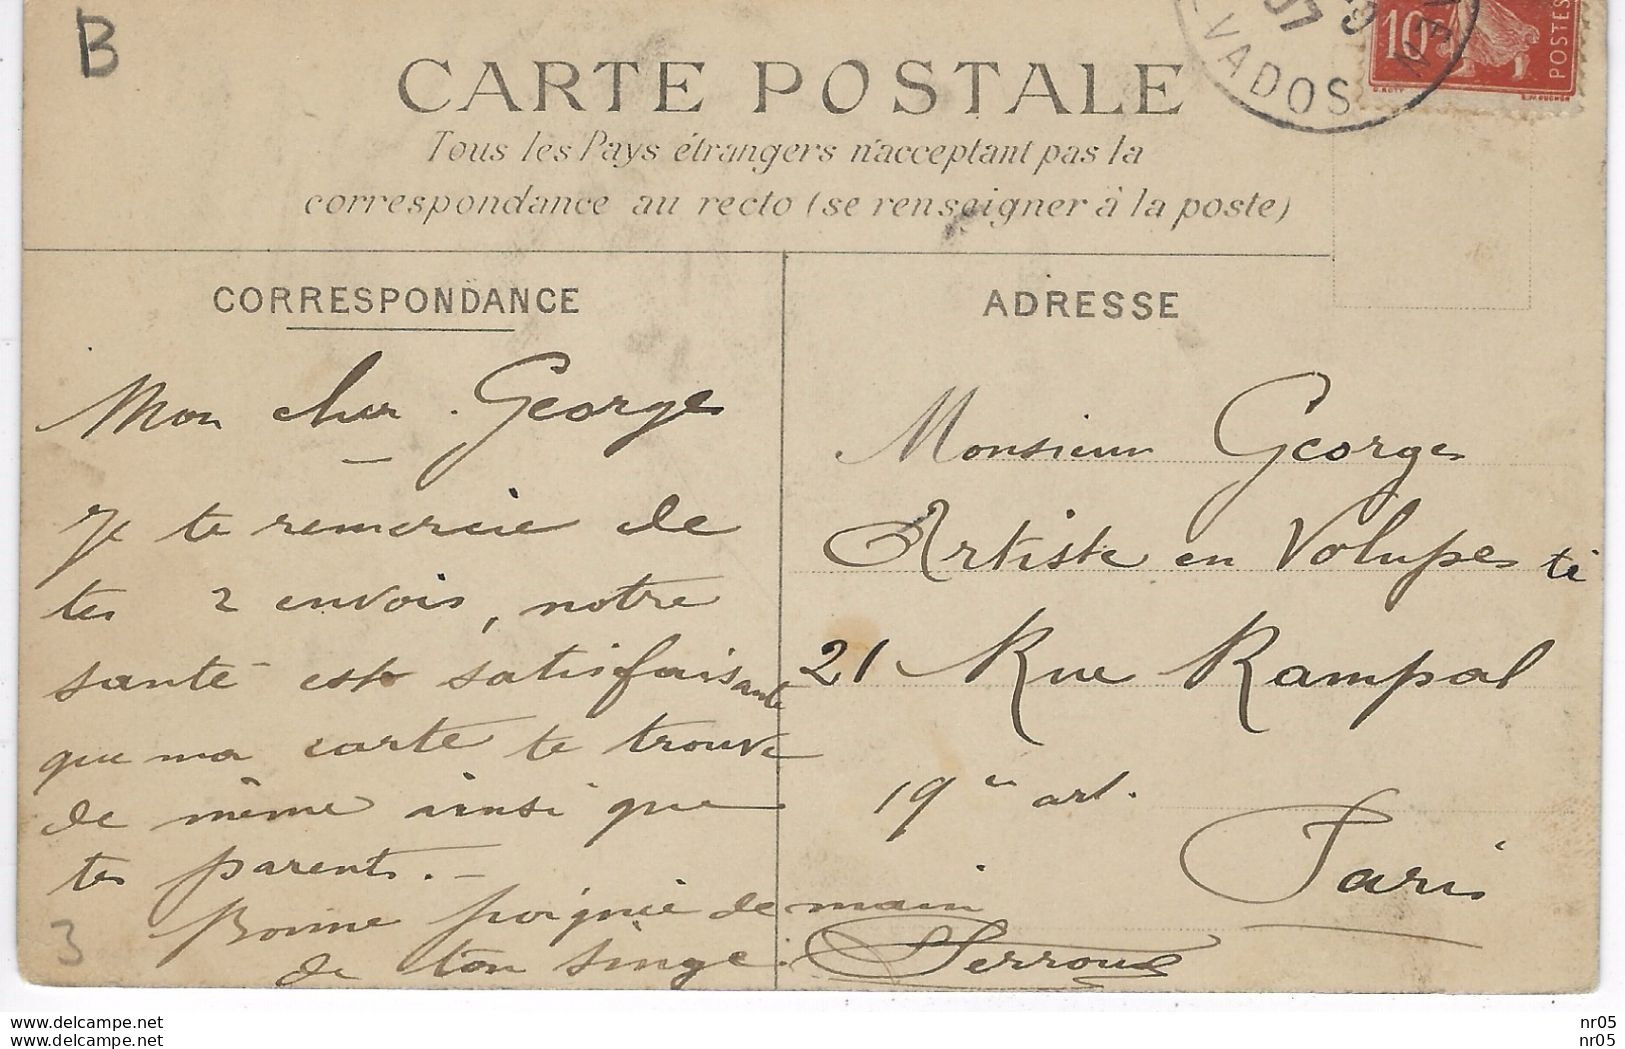 B
CARTE POSTALE
Tous les Pays étrangers n'acceptant pas la
correspondance au recto (se renseigner à la poste)
VADOS
07
10
POSTES
CORRESPONDANCE
Mon cher Georges
Je te remercie de
tes 2 envois, notre
santé est satisfaisante
que ma carte te trouve
de même ainsi que
tes parents. –
Bonne poignée de main
de ton singe.
3
ADRESSE
Monsieur Georges
Artiste en Volupes té
21 Rue Rampal
19e art.
Paris
www.delcampe.net
www.delcampe.net
nr05
nr05